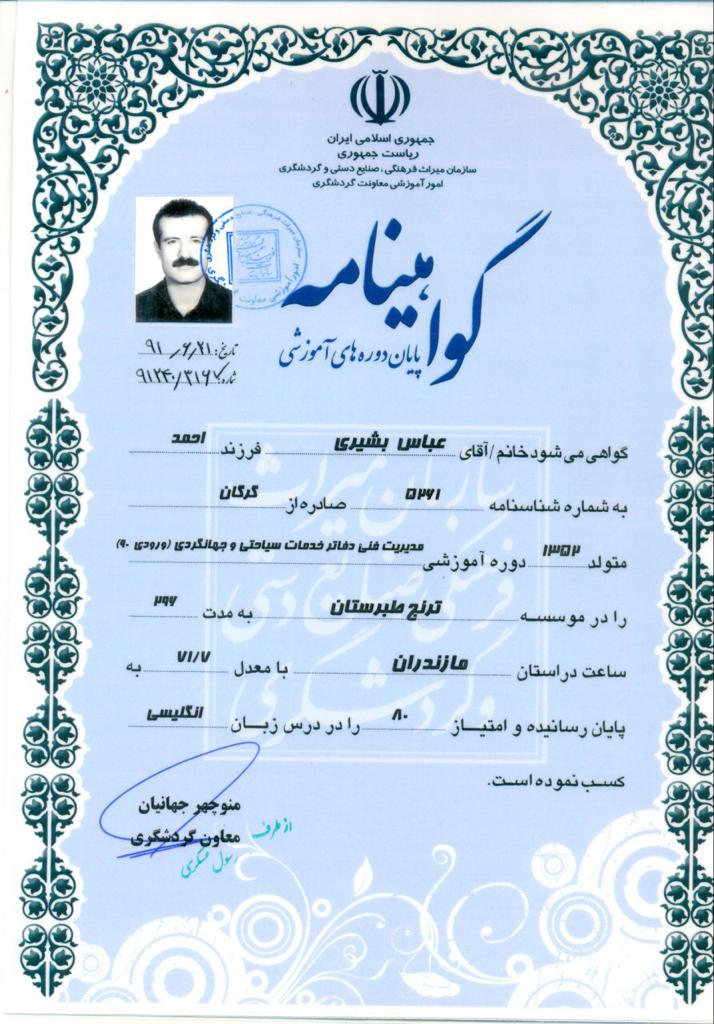 جمهوری اسلامی ایران
ریاست جمهوری
سازمان میراث فرهنگی، صنایع دستی و گردشگری
امور آموزشی معاونت گردشگری
گواهینامه
پایان دوره های آموزشی
تاریخ: ۹۱/۶/۲۱
شماره: ۹۱۲۴۰/۳۱۶۷
گواهی می شود خانم / آقای عباس بشیری فرزند احمد
به شماره شناسنامه ۵۲۶۱ صادره از گرگان
متولد ۱۳۵۲ دوره آموزشی مدیریت فنی دفاتر خدمات سیاحتی و جهانگردی (ورودی ۹۰)
را در موسسه ترنج طبرستان به مدت ۲۹۶
ساعت در استان مازندران با معدل ۷۱/۷ به
پایان رسانیده و امتیاز ۸۰ را در درس زبان انگلیسی
کسب نموده است.
منوچهر جهانیان
معاون گردشگری
از طرف
رسول عسکری
سازمان میراث
فرهنگی صنایع دستی
و گردشگری